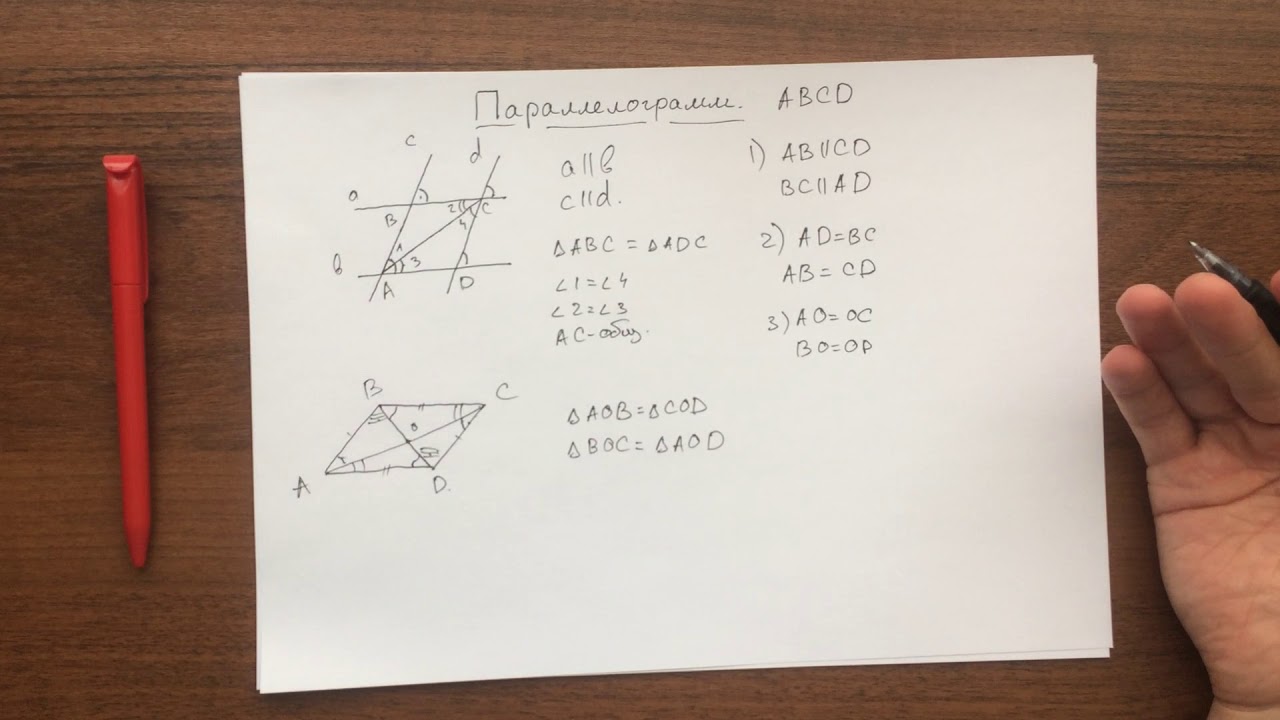 Параллелограмм. ABCD
c
d
a
B
2
C
4
1
b
3
A
D
a||b
c||d.
△ABC = △ADC
∠1=∠4
∠2=∠3
AC-общ.
1) AB||CD
BC||AD
2) AD=BC
AB=CD
3) AO=OC
BO=OD
B
C
O
A
D.
△AOB=△COD
△BOC=△AOD